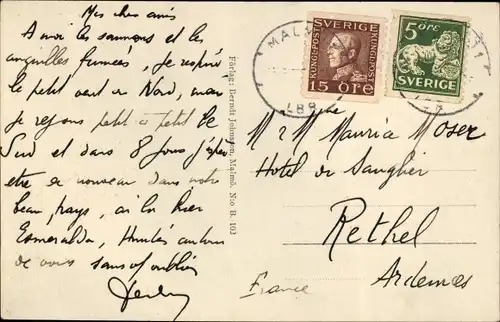 Mes chers amis
A moi les saumons et les
anguilles fumées, je respire
le petit vent du Nord, mais
je rejoins petit à petit le
Sud et dans 8 jours j'espère
être à nouveau dans notre
beau pays, ai lu hier
Esmeralda,
de vous sans oublier
Förlag: Berndt Johnsson, Malmö. N:o B. 102
MALMÖ
LBR
KUNGL·POST
SVERIGE
KUNGL·POST
15 ÖRE
5 öre
SVERIGE
Mr & Mme Maurice Moser
Hotel du Sanglier
Rethel
Ardennes
France